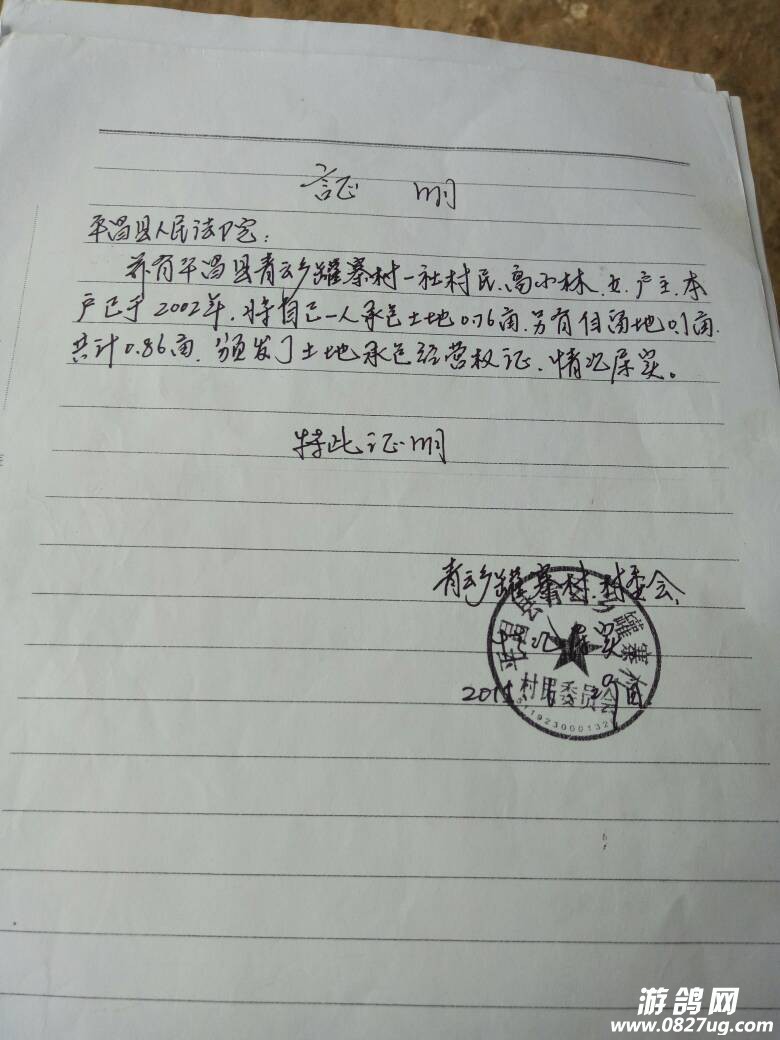 证 明
平昌县人民法院:
兹有平昌县青云乡罐寨村一社村民、高小林、女、户主、本
户已于2002年、将自己一人承包土地0.76亩、另有自留地0.1亩.
共计0.86亩、颁发了土地承包经营权证、情况属实。
特此证明
青云乡罐寨村.村委会、
情况属实
201
平昌县 乡罐寨村
村民委员会
游鸽网
www.0827ug.com